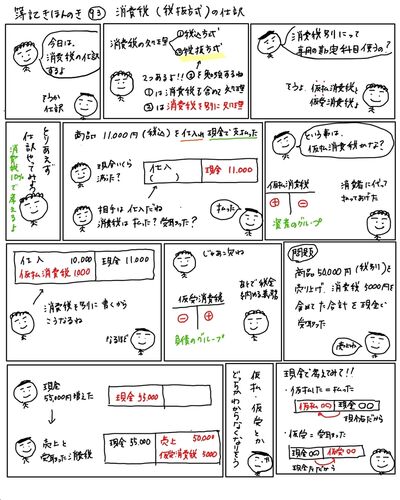 簿記きほんのき 93 消費税(税抜方式)の仕訳
今日は、
消費税の仕訳
するよ
てうか
仕訳
消費税の処理
①税込方式
②税抜方式
2つあるよ!!②を勉強するね
①は消費税を含めて処理
②は消費税を別に処理
消費税 別にって
専用の勘定科目使うの?
そうよ、仮払消費税と
仮受消費税よ
とりあえず
仕訳やってみよう
消費税10%で考えるよ
商品 11,000円(税込)を仕入れ 現金で支払った
現金いくら
減った?
仕入
( )
現金 11,000
相手は仕入だね
消費税は払った?受取った?
払った
という事は、
仮払消費税かな?
仮払消費税
+
-
資産のグループ
消費者に代って
払ってあげた
仕入 10,000
仮払消費税 1000
現金 11,000
消費税を別に書くから
こうなるね
なるほど
じゃあこっちね
仮受消費税
-
+
負債のグループ
あとで税金
を納める義務
問題
商品50,000円(税別)を
売り上げ、消費税5000円を
含めた合計を現金で
受取った
売上ね
現金
55,000円増えた
現金 55,000
売上と
受取った消費税
現金 55,000
売上 50,000
仮受消費税 5000
仮払・仮受とか
どっちかわからなくなりそう
現金で考えてみて!!
・仮払した=払った
仮払〇〇
現金〇〇
現金右だから
・仮受=受取った
現金〇〇
仮受〇〇
現金左だから